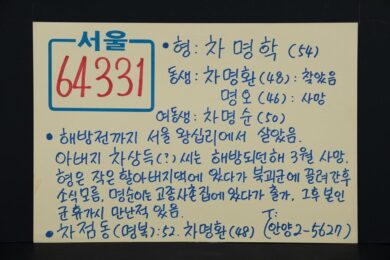 서울
64331
• 형: 차명학 (54)
동생: 차명환 (48): 찾았음
명오 (46): 사망
여동생: 차명순 (50)
• 해방전까지 서울 왕십리에서 살았음.
아버지 차상득(?)씨는 해방되던해 3월 사망.
형은 작은 할아버지댁에 있다가 북괴군에 끌려간후
소식모름, 명순이는 고종사촌집에 있다가 출가, 그후 본인
군 휴가시 만난적 있음.
T:
• 차점동(명복):52. 차명환(48) (안양2-5627)